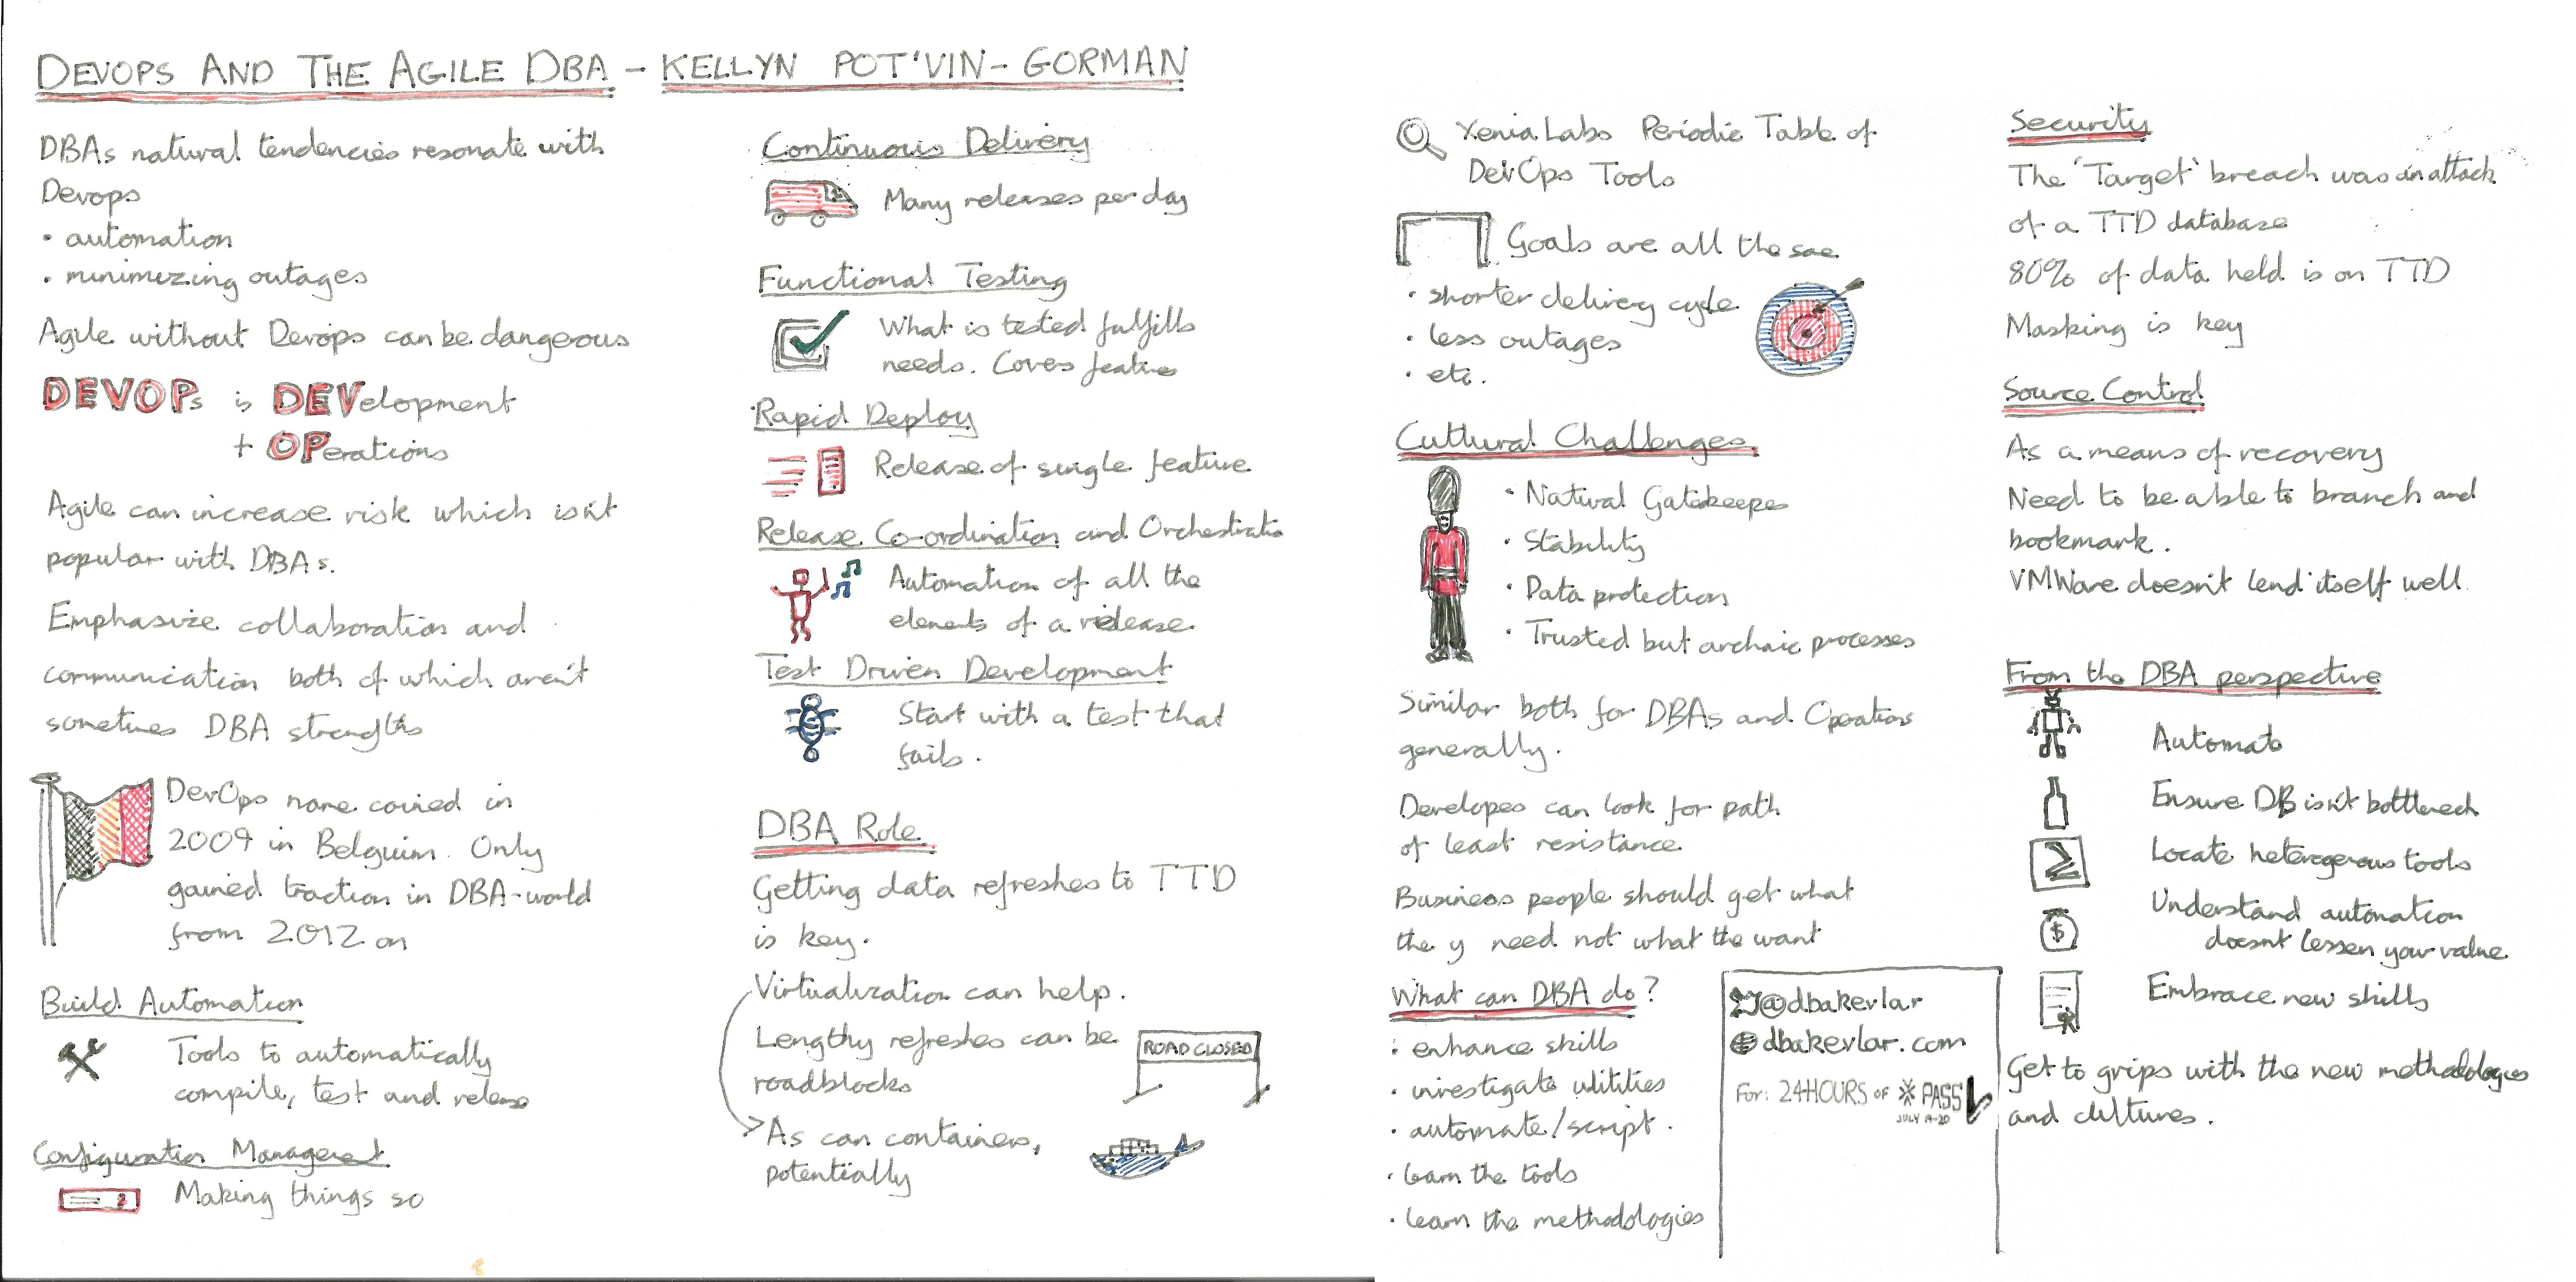 DEVOPS AND THE AGILE DBA - KELLYN POT'VIN-GORMAN
DBAs natural tendencies resonate with
Devops
• automation
• minimizing outages
Agile without Devops can be dangerous
DEVOPs is DEVelopment
+ OPerations
Agile can increase risk which isn't
popular with DBAs.
Emphasize collaboration and
communication both of which aren't
sometimes DBA strengths
DevOps name coined in
2009 in Belguim. Only
gained traction in DBA-world
from 2012 on
Build Automation
Tools to automatically
compile, test and release
Configuration Management
Making things so
Continuous Delivery
Many releases per day
Functional Testing
What is tested fulfills
needs. Covers features
Rapid Deploy
Release of single feature
Release Co-ordination and Orchestratio
Automation of all the
elements of a release
Test Driven Development
Start with a test that
fails.
DBA Role
Getting data refreshes to TTD
is key.
Virtualization can help.
Lengthy refreshes can be
roadblocks
ROAD CLOSED
As can containers,
potentially
Xenia Labs Periodic Table of
DevOps Tools
Goals are all the sae
• shorter delivery cycle
• less outages
• etc.
Cultural Challenges
• Natural Gatekeepes
• Stability
• Data protection
• Trusted but archaic processes
Similar both for DBAs and Operations
generally.
Developes can look for path
of least resistance
Business people should get what
the y need not what the want
What can DBA do?
• enhance skills
• investigate utilities
• automate/script.
• learn the tools
• learn the methodologies
@dbakevlar
dbakevlar.com
For: 24HOURS OF PASS
JULY 19-20
Security
The 'Target' breach was an attack
of a TTD database
80% of data held is on TTD
Masking is key
Source Control
As a means of recovery
Need to be able to branch and
bookmark.
VMWare doesn't lend itself well
From the DBA perspective
Automate
Ensure DB isn't bottleneck
Locate heterogenous tools
Understand automation
doesnt lessen your value
$
Embrace new skills
Get to grips with the new methodologies
and cultures.